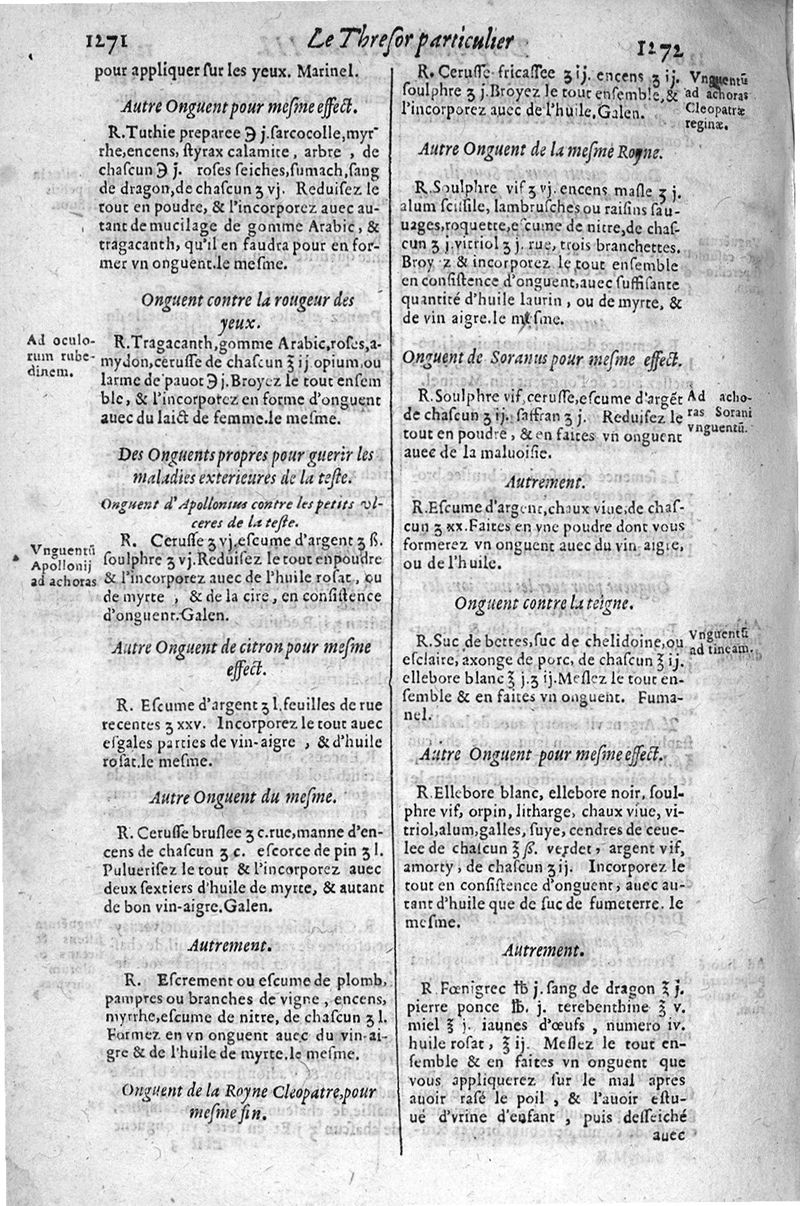 1271
Le Threſor particulier
1272
pour appliquer ſur les yeux. Marinel.
Autre Onguent pour meſme effect.
R. Tuthie preparee ℈ j. ſarcocolle, myr
rhe, encens, ſtyrax calamite, arbre, de
chaſcun ℈ j. roſes ſeiches, ſumach, ſang
de dragon, de chaſcun ʒ vj. Reduiſez le
tout en poudre, & l'incorporez auec au-
tant de mucilage de gomme Arabic, &
tragacanth, qu'il en faudra pour en for-
mer vn onguent. le meſme.
Onguent contre la rougeur des
yeux.
Ad oculo-
rum rube-
dinem.
R. Tragacanth, gomme Arabic, roſes, a-
mydon, ceruſſe de chaſcun ℥ ij opium, ou
larme de pauot ℈ j. Broyez le tout enſem
ble, & l'incorporez en forme d'onguent
auec du laict de femme. le meſme.
Des Onguents propres pour guerir les
maladies exterieures de la teſte.
Onguent d'Apollonius contre les petits vl-
ceres de la teſte.
Vnguentũ
Apollonij
ad achoras
R. Ceruſſe ʒ vj. eſcume d'argent ʒ ß.
ſoulphre ʒ vj. Reduiſez le tout en poudre
& l'incorporez auec de l'huile roſat, ou
de myrte, & de la cire, en conſiſtence
d'onguent. Galen.
Autre Onguent de citron pour meſme
effect.
R. Eſcume d'argent ʒ l. feuilles de rue
recentes ʒ xxv. Incorporez le tout auec
eſgales parties de vin-aigre, & d'huile
roſat. le meſme.
Autre Onguent du meſme.
R. Ceruſſe bruſlee ʒ c. rue, manne d'en-
cens de chaſcun ʒ c. eſcorce de pin ʒ l.
Puluerisez le tout & l'incorporez auec
deux ſextiers d'huile de myrte, & autant
de bon vin-aigre. Galen.
Autrement.
R. Eſcrement ou eſcume de plomb,
pampres ou branches de vigne, encens,
myrrhe, eſcume de nitre, de chaſcun ʒ l.
Formez en vn onguent auec du vin-ai-
gre & de l'huile de myrte. le meſme.
Onguent de la Royne Cleopatre, pour
meſme fin.
R. Ceruſſe fricaſſee ʒ ij. encens ʒ ij.
ſoulphre ʒ j. Broyez le tout enſemble, &
l'incorporez auec de l'huile. Galen.
Vnguentũ
ad achoras
Cleopatræ
reginæ.
Autre Onguent de la meſme Royne.
R. Soulphre vif ʒ vj. encens maſle ʒ j.
alum ſciſſile, lambruſches ou raiſins ſau-
uages, roquette, eſcume de nitre, de chaſ-
cun ʒ j. vitriol ʒ j. rue, trois branchettes.
Broy z & incorporez le tout enſemble
en conſiſtence d'onguent, auec ſuffiſante
quantité d'huile laurin, ou de myrte, &
de vin aigre. le meſme.
Onguent de Soranus pour meſme effect.
R. Soulphre vif, ceruſſe, eſcume d'argẽt
de chaſcun ʒ ij. ſaffran ʒ j. Reduiſez le
tout en poudre, & en faites vn onguent
auec de la maluoiſie.
Ad acho-
ras Sorani
vnguentũ.
Autrement.
R. Eſcume d'argent, chaux viue, de chaſ-
cun ʒ xx. Faites en vne poudre dont vous
formerez vn onguent auec du vin aigre,
ou de l'huile.
Onguent contre la teigne.
Vnguentũ
ad tineam.
R. Suc de bettes, ſuc de chelidoine, ou
eſclaire, axonge de porc, de chaſcun ℥ ij.
ellebore blanc ℥ j. ʒ ij. Meſlez le tout en-
ſemble & en faites vn onguent. Fuma-
nel.
Autre Onguent pour meſme effect.
R. Ellebore blanc, ellebore noir, ſoul-
phre vif, orpin, litharge, chaux viue, vi-
triol, alum, galles, ſuye, cendres de ceue-
lee de chaſcun ℥ ß. verdet, argent vif,
amorty, de chaſcun ʒ ij. Incorporez le
tout en conſiſtence d'onguent, auec au-
tant d'huile que de ſuc de fumeterre. le
meſme.
Autrement.
R Fœnigrec ℔ j. ſang de dragon ℥ j.
pierre ponce ℔. j. terebenthine ℥ v.
miel ℥ j. iaunes d'œufs, numero iv.
huile roſat, ℥ ij. Meſlez le tout en-
ſemble & en faites vn onguent que
vous appliquerez ſur le mal apres
auoir raſé le poil, & l'auoir eſtu-
ué d'vrine d'enfant, puis deſſeiché
auec